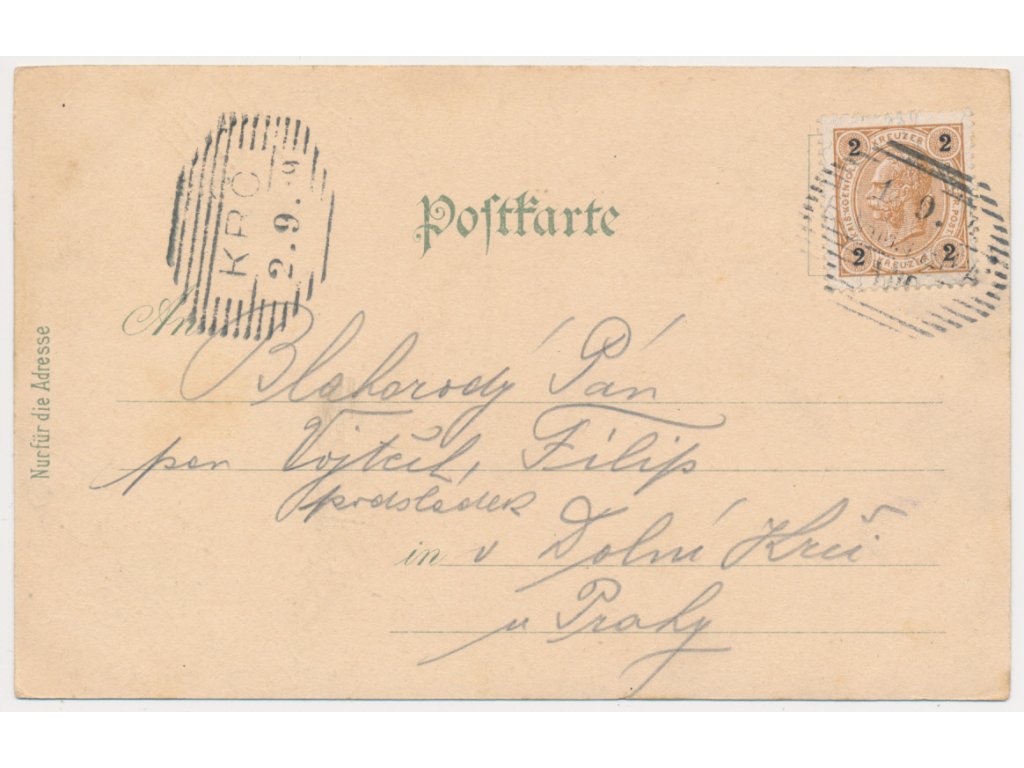 KRČ
2.9.
Postkarte
2 KREUZER 2
2 KREUZER 2
9.
An
Blahorodý Pán
pan Vojtěch, Filip
podsládek
in v Dolní Krči
u Prahy
Nur für die Adresse